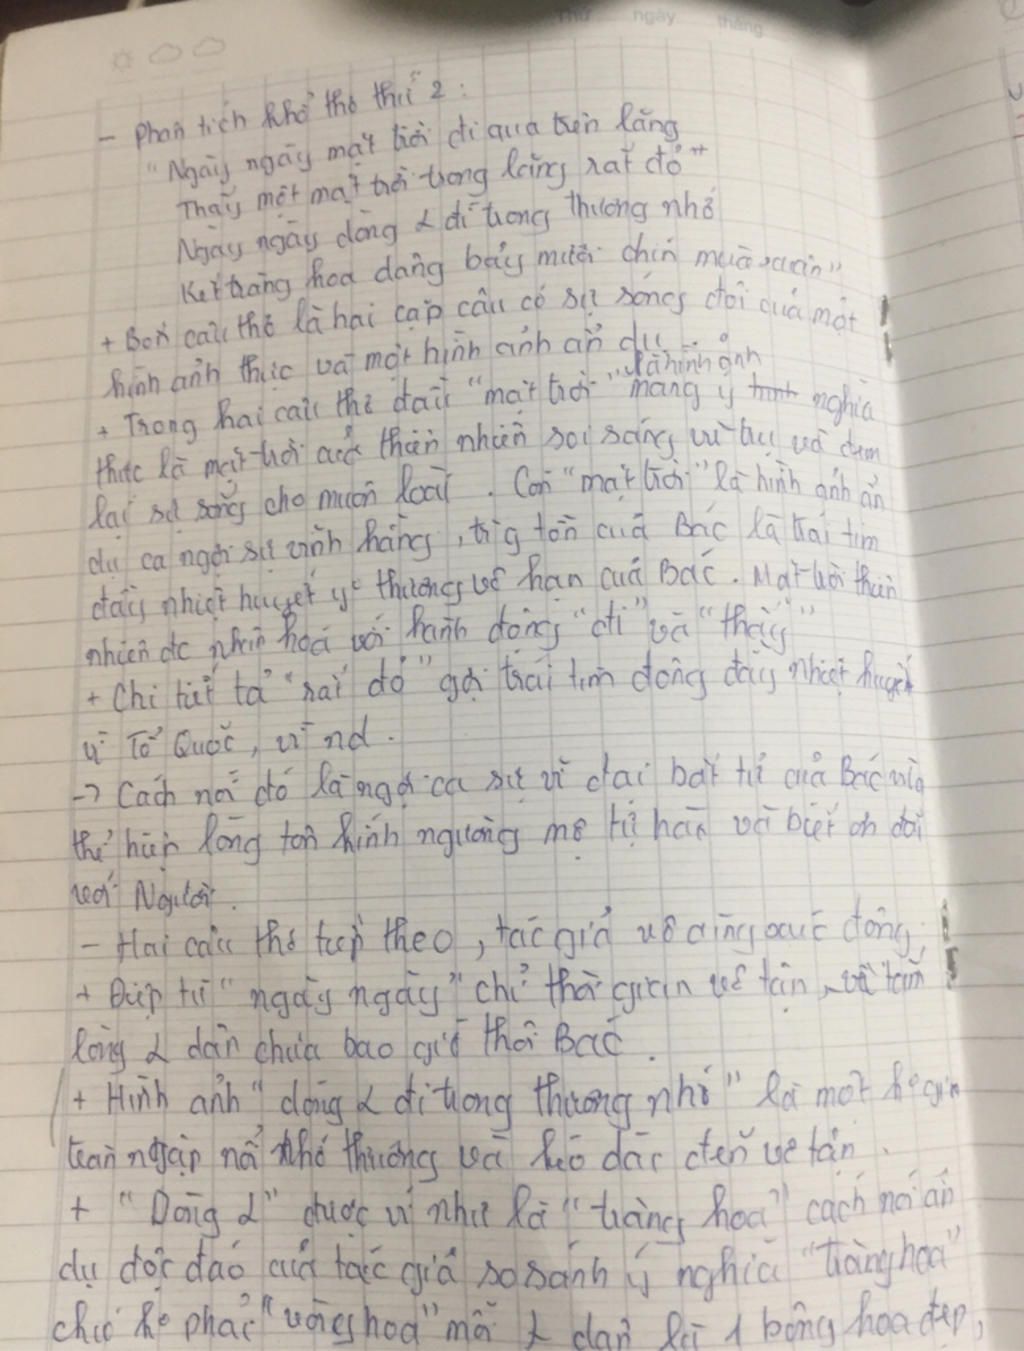 Thứ ngày tháng
- Phân tích khổ thơ thứ 2 :
"Ngày ngày mặt trời đi qua trên lăng
Thấy một mặt trời trong lăng rất đỏ"
Ngày ngày dòng 2 đi trong thương nhớ
Kết tràng hoa dâng bảy mươi chín mùa xuân"
+ Bốn câu thơ là hai cặp câu có sự sóng đôi qua một
hình ảnh thực và một hình ảnh ẩn dụ.
+ Trong hai câu thơ đầu "mặt trời" là hình ảnh mang ý nghĩa
thực là mặt trời của thiên nhiên soi sáng vũ trụ và đem
lại sự sống cho muôn loài. Còn "mặt trời" là hình ảnh ẩn
dụ ca ngợi sự vĩnh hằng, trg tồn của Bác là trái tim
đầy nhiệt huyết yê thương vô hạn của Bác. Mặt trời thiên
nhiên đc nhân hoá với hành động "đi" và "thấy"
+ Chi tiết tả "rất đỏ" gợi trái tim đong đầy nhiệt huyết
vì Tổ Quốc, vì nd.
-> Cách nói đó là ngợi ca sự vĩ đại bất tử của Bác vừa
thể hiện lòng tôn kính ngưỡng mộ tự hào và biết ơn đối
với Người.
- Hai câu thơ tiếp theo, tác giả vô cùng xúc động
+ Điệp từ "ngày ngày" chỉ thời gian vô tận, và tấm
lòng 2 dân chưa bao giờ thôi Bác.
+ Hình ảnh "dòng 2 đi trong thương nhớ" là một k gian
tràn ngập nỗi nhớ thương và kéo dài đến vô tận.
+ "Dòng 2" được ví như là "tràng hoa" cách nói ẩn
dụ độc đáo của tác giả so sánh ý nghĩa "tràng hoa"
chứ k phải "vòng hoa" mỗi 2 dân là 1 bông hoa đẹp,